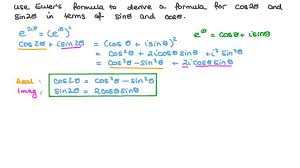 Use Euler's formula to derive a formula for cos2θ and
sin2θ in terms of sinθ and cosθ.
e^{iθ} = cosθ + isinθ
e^{2iθ} = (e^{iθ})²
cos2θ + isin2θ = (cosθ + isinθ)²
= cos²θ + 2icosθsinθ + i²sin²θ
= cos²θ - sin²θ + 2icosθsinθ
Real: cos2θ = cos²θ - sin²θ
Imag: sin2θ = 2cosθsinθ